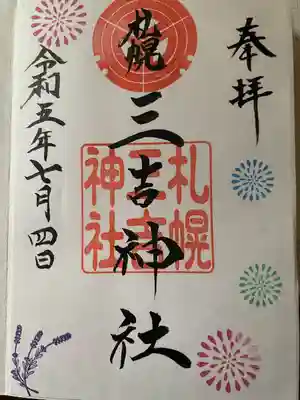 奉拝
札幌
三吉神社
札幌
三吉
神社
令和五年七月四日